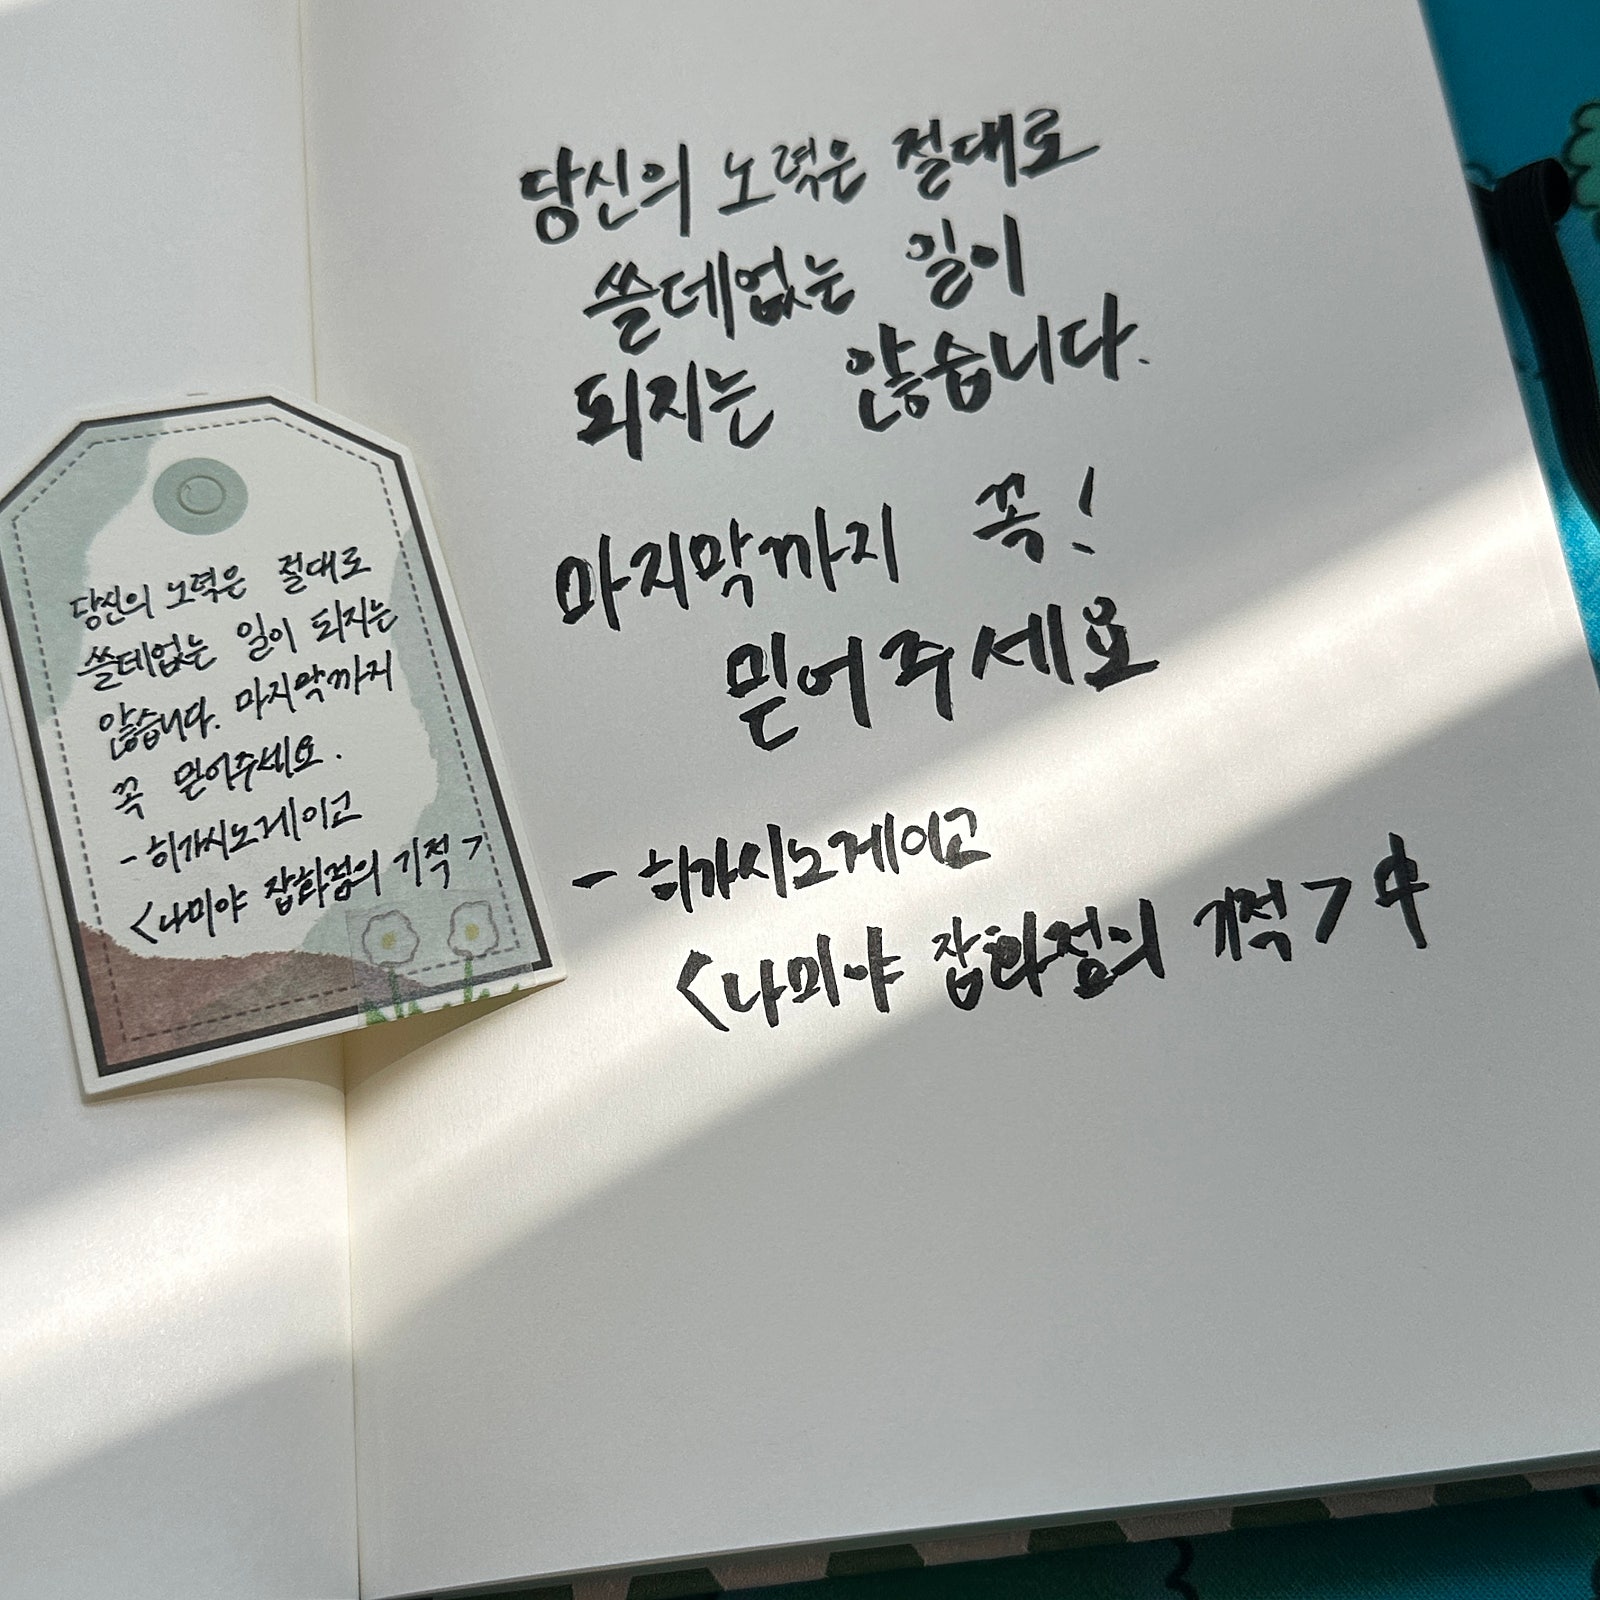 당신의 노력은 절대로
쓸데없는 일이
되지는 않습니다.
마지막까지 꼭!
믿어주세요
- 히가시노게이고
<나미야 잡화점의 기적> 中
당신의 노력은 절대로
쓸데없는 일이 되지는
않습니다. 마지막까지
꼭 믿어주세요.
- 히가시노게이고
<나미야 잡화점의 기적>